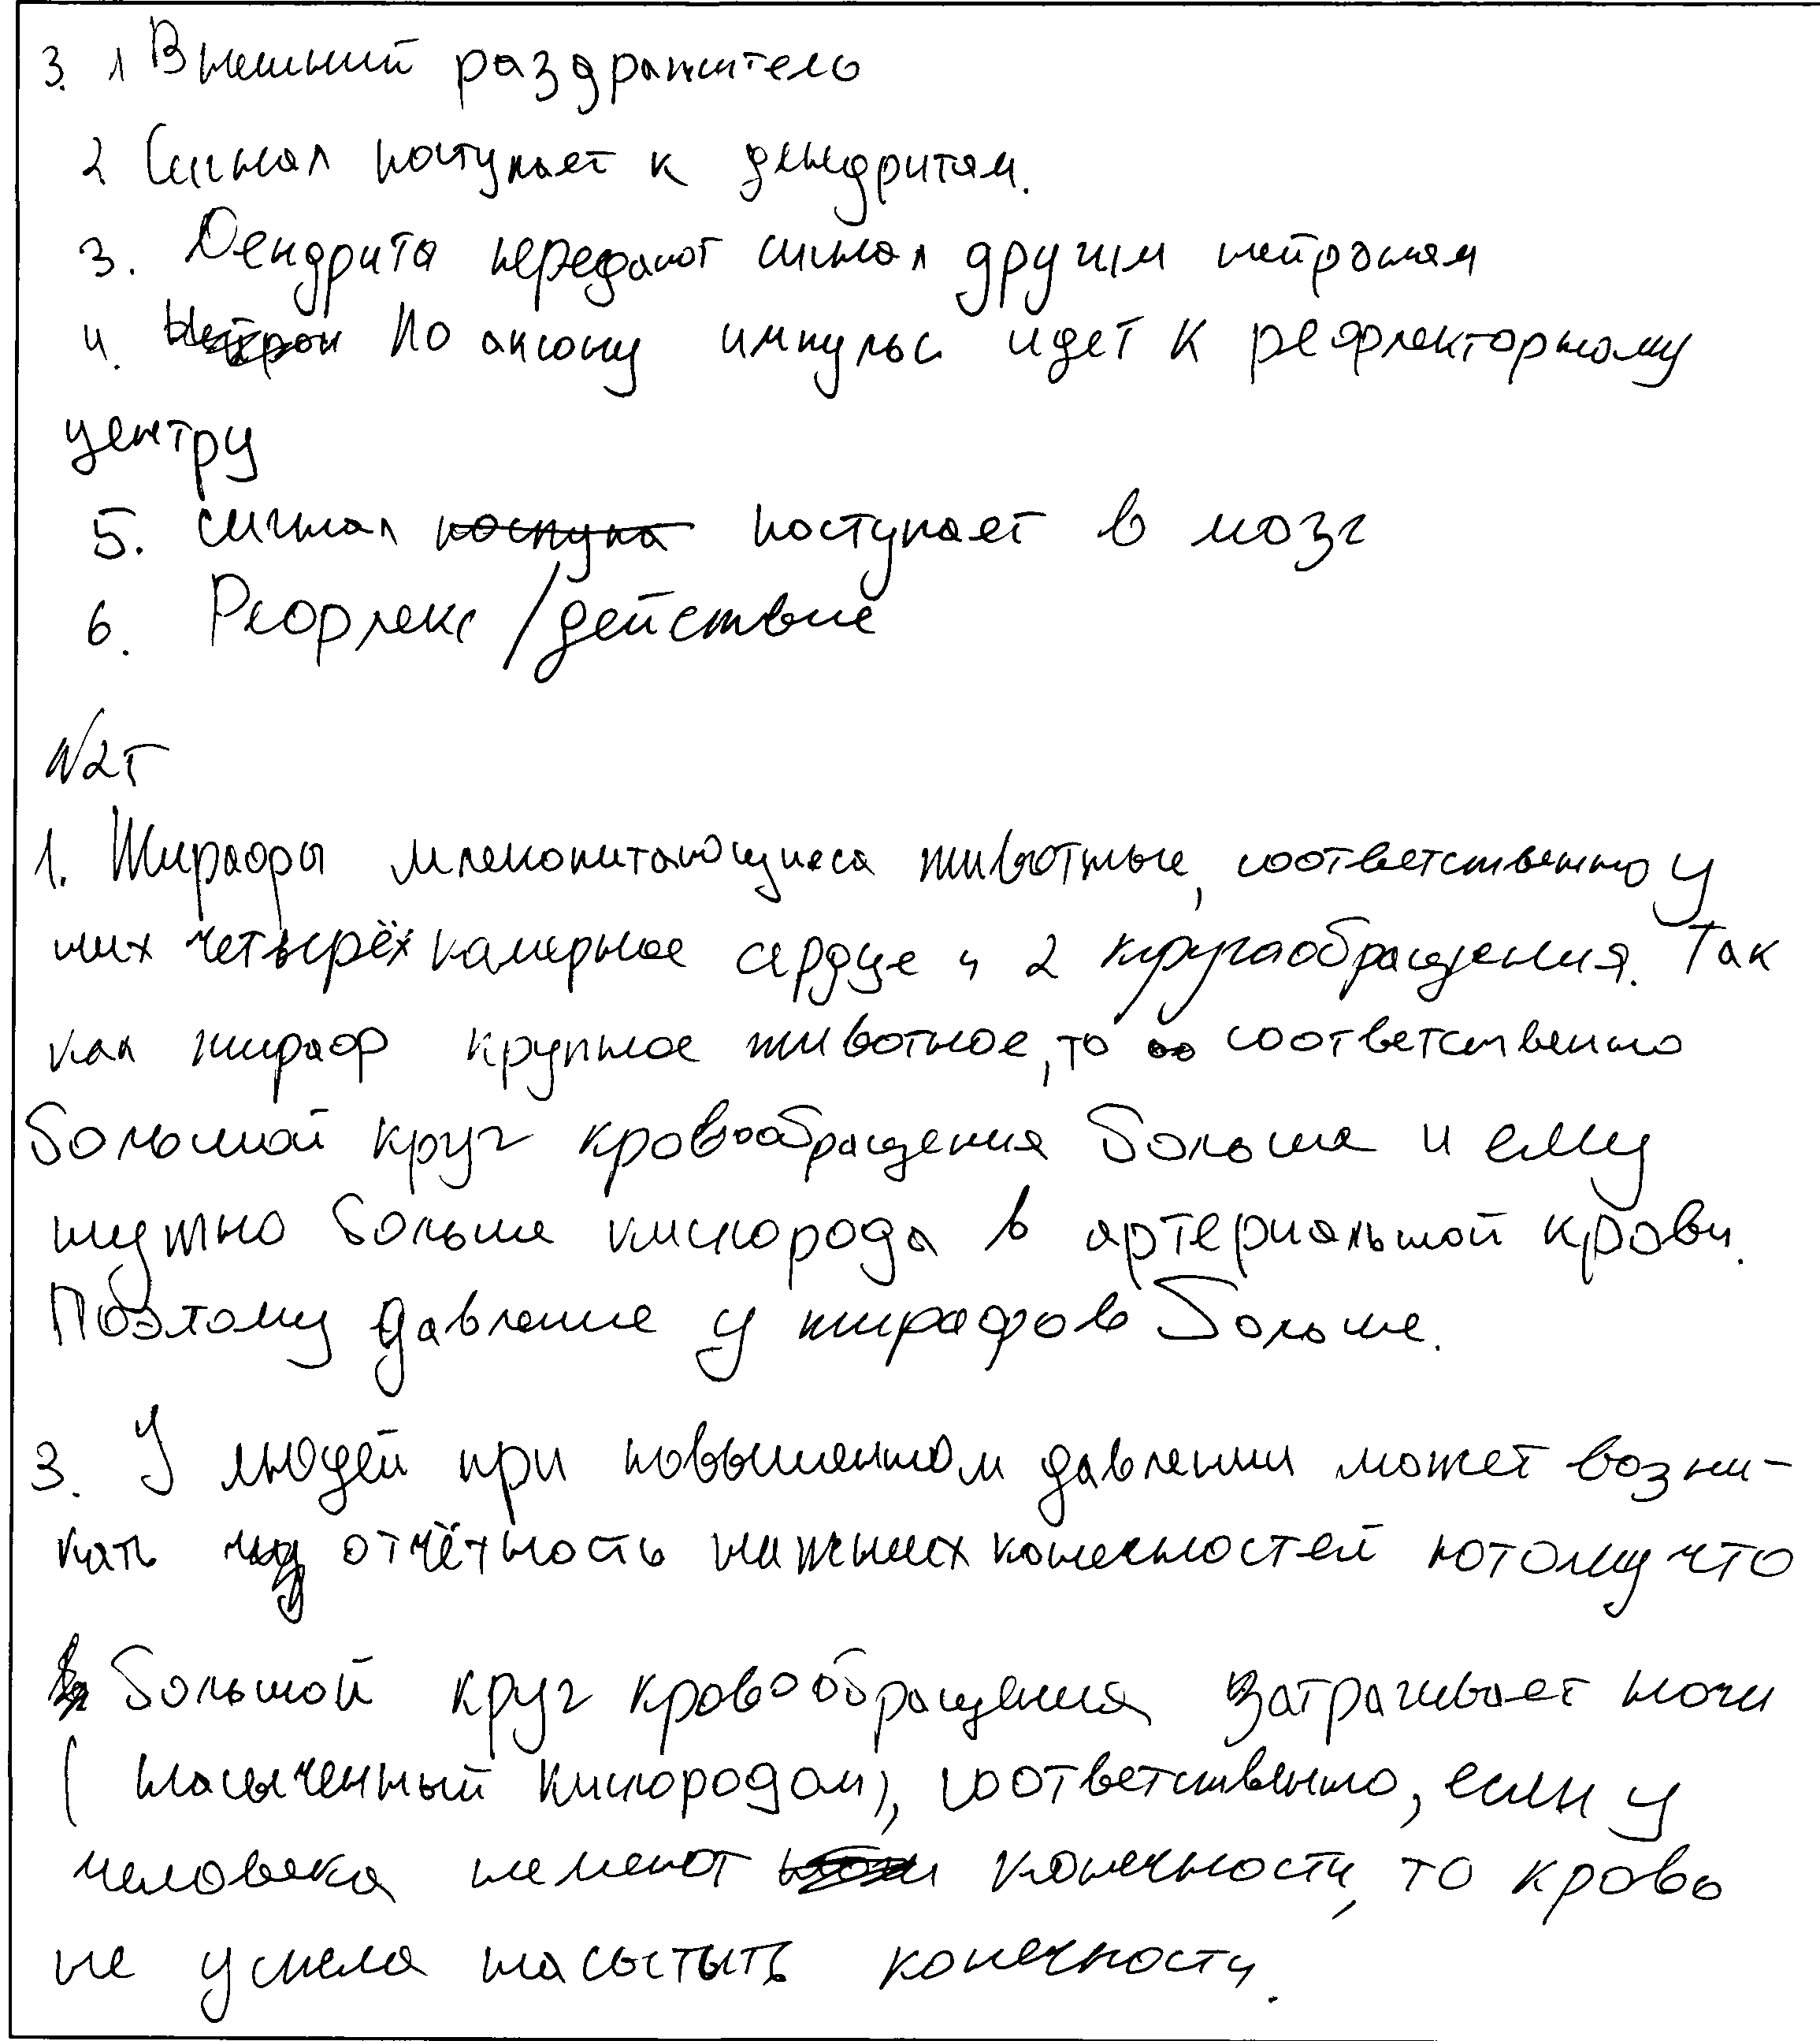 3. 1 Внешний раздражитель
2 Сигнал поступает к дендритам.
3. Дендрита передают сигнал другим нейронам
4. По аксону импульс идет к рефлекторному
центру
5. сигнал поступает в мозг
6. Рефлекс / действие
N2T
1. Жирафы млекопитающиеса животные, соответственно у
них четырёхкамерное сердце и 2 кругаобращения. Так
как жираф крупное животное, то соответственно
большой круг кровообращения больше и ему
нужно больше кислорода в артериальной крови.
Поэтому давление у жирафов больше.
3. У людей при повышенном давлении может возни-
кать отчётность нижних конечностей потому что
большой круг кровообращения затрагивает ноги
(насыченный кислородом), соответственно, если у
человека немеют конечности, то кровь
не успела насытить конечности.